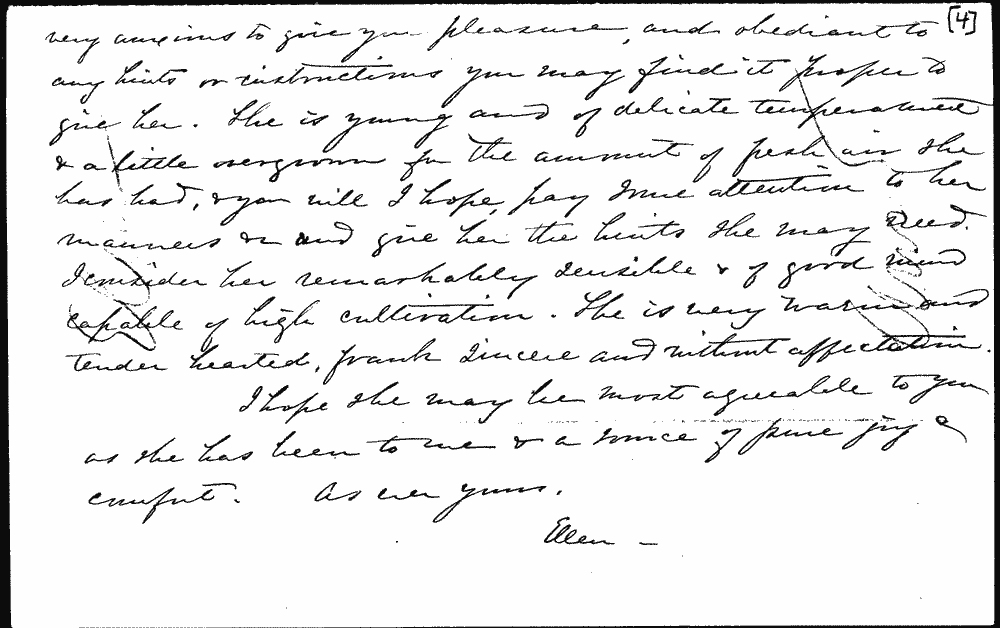 [4]
very anxious to give you pleasure, and obediant to
any hints or instructions you may find it proper to
give her. She is young and of delicate temperament
& a little overgrown for the amount of fresh air she
has had, & you will I hope, pay some attention to her
manners & and give her the hints she may need.
I consider her remarkably sensible & of good mind
capable of high cultivation. She is very warm and
tender hearted, frank sincere and without affectation.
I hope she may be most agreeable to you
as she has been to me & a source of pure joy &
comfort. As ever yours.
Ellen -